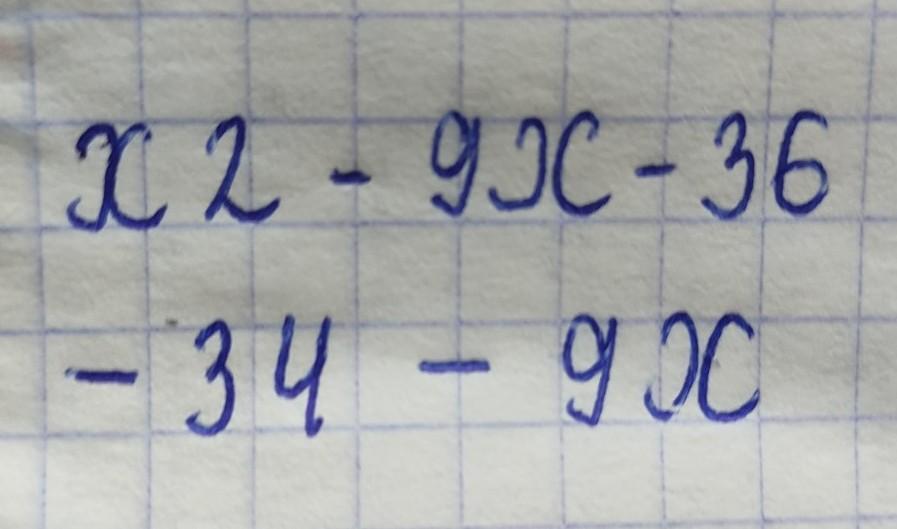 x2 - 9x - 36
- 34 - 9x